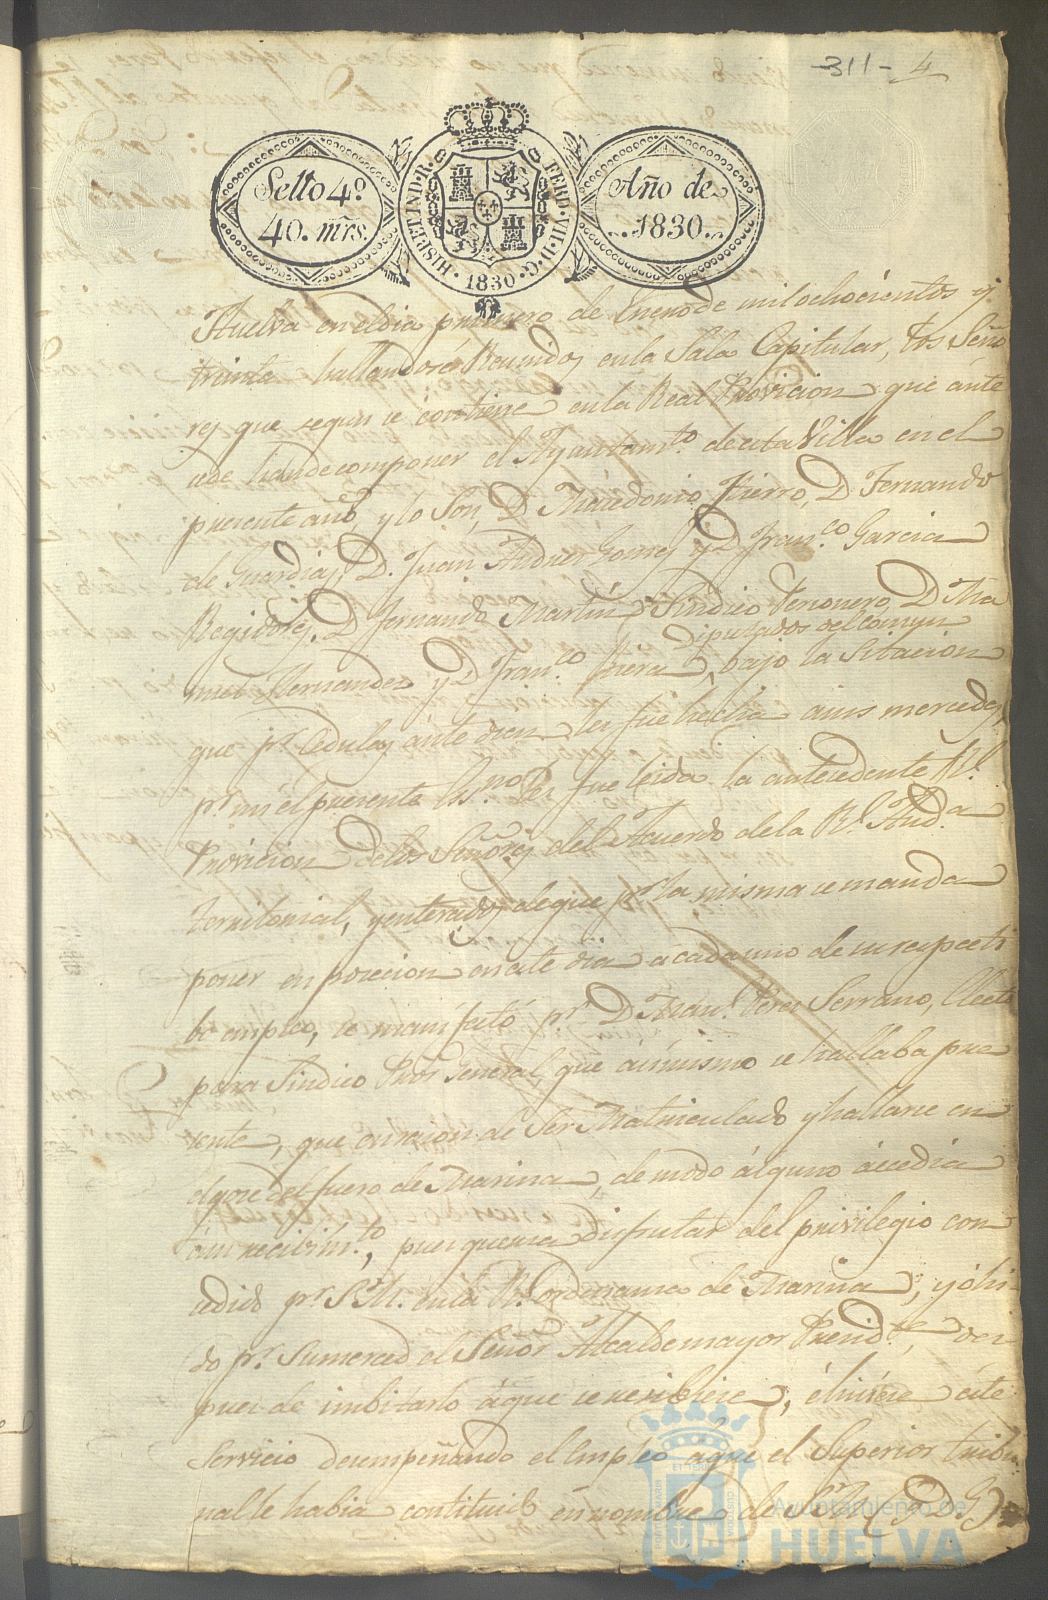 311- 4
Sello 4º
40. mrs.
HISP. ET IND. R. FERD. VII. D. G. 1830
Año de
1830.
Huelva en el dia primero de Enero de mil ochocientos y
treinta hallandose Reunidos en la Sala Capitular, los Seño
res que segun se contiene en la Real Provicion que ante
cede han de componer el Ayuntamto. de esta Villa en el
presente año, y lo Son, D. Macedonio Fierro, D. Fernando
de Guardia, D. Juan Andres Gomez y D. Franco. Garcia
Regidores, D. Fernando Martin Sindico Personero, D. Ma
Diputados del comun
nuel Hernandez y D. Franco. , bajo la Sitacion
que pr. Cedulas ante diem les fue hecha a sus mercedes,
pr. mi el presente Esno. les fue leida la antecedente Rl.
Provicion de los Señores del Acuerdo de la Rl. Auda.
territorial, y enterados de que pr. la misma se manda
poner en posecion en este dia a cada uno de su respecti
bo empleo, se manifestó pr. D. Fran. Peres Serrano, Electo
para Sindico Pror. General, que asimismo se hallaba pre
sente, que en razon de Ser Matriculado y hallarse en
el gose del fuero de Marina, de modo álguno áccedia
á su recivimto., pues queria disfrutar del privilegio con
cedido pr. S. M. en la Rl. ordenansa de Marina, y óhi-
do pr. Su merced el Señor Alcalde mayor Presidte., des-
pues de imbitarlo á que se resibiese, é hisiese éste
Servicio desempeñando el Empleo á que el Superior tribu
nal le habia constituido en nombre de S. M. (Q. D. G.)
Ayuntamiento de
HUELVA